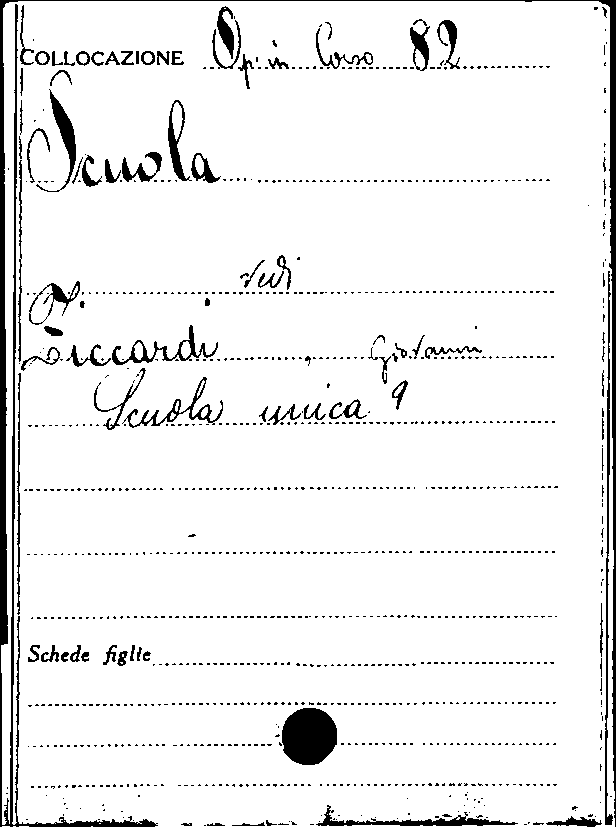 COLLOCAZIONE Op. in Corso 82
Scuola
vedi
Ziccardi, Giovanni
Scuola unica
Schede figlie